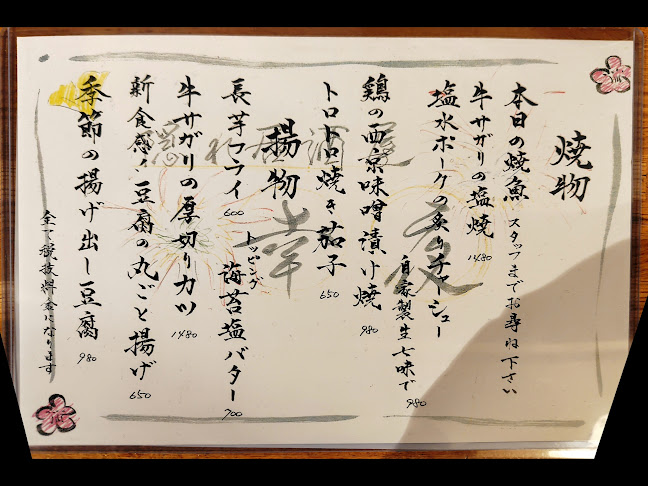 焼物
本日の焼魚 スタッフまでお尋ね下さい
牛サガリの塩焼 1480
塩水ポークの炙りチャーシュー
自家製生七味で 980
鶏の西京味噌漬け焼 980
トロトロ焼き茄子 650
揚物
長芋フライ 600
トッピング
海苔塩バター 700
牛サガリの厚切りカツ 1480
新食感！豆腐の丸ごと揚げ 650
季節の揚げ出し豆腐 980
全て税抜料金になります
隠れ居酒屋